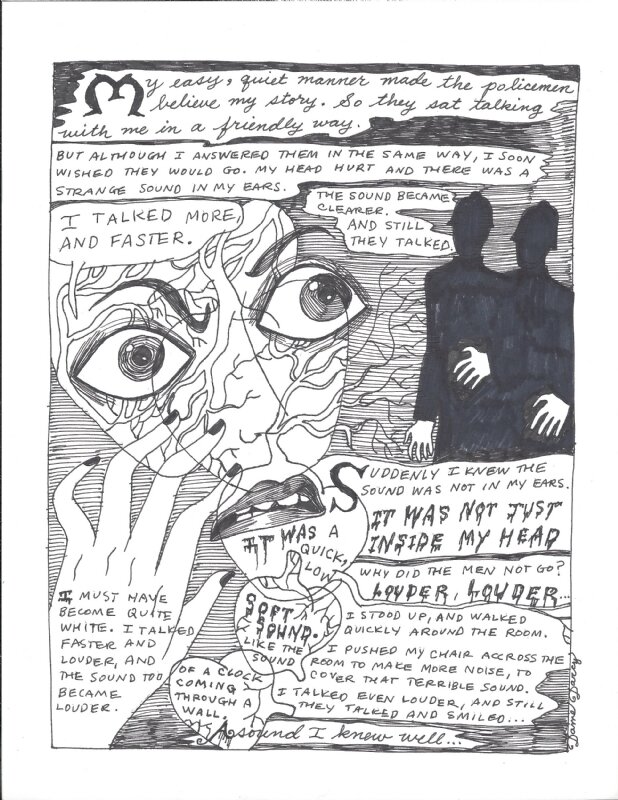 My easy, quiet manner made the policemen
believe my story. So they sat talking
with me in a friendly way.
BUT ALTHOUGH I ANSWERED THEM IN THE SAME WAY, I SOON
WISHED THEY WOULD GO. MY HEAD HURT AND THERE WAS A
STRANGE SOUND IN MY EARS.
I TALKED MORE,
AND FASTER.
THE SOUND BECAME
CLEARER.
AND STILL
THEY TALKED.
SUDDENLY I KNEW THE
SOUND WAS NOT IN MY EARS.
IT WAS NOT JUST
INSIDE MY HEAD
I MUST HAVE
BECOME QUITE
WHITE. I TALKED
FASTER AND
LOUDER, AND
THE SOUND TOO
BECAME
LOUDER.
IT WAS A
QUICK,
LOW
SOFT
SOUND.
LIKE THE
SOUND
OF A CLOCK
COMING
THROUGH A
WALL.
A sound I knew well...
WHY DID THE MEN NOT GO?
LOUDER, LOUDER...
I STOOD UP, AND WALKED
QUICKLY AROUND THE ROOM.
I PUSHED MY CHAIR ACCROSS THE
ROOM TO MAKE MORE NOISE, TO
COVER THAT TERRIBLE SOUND.
I TALKED EVEN LOUDER, AND STILL
THEY TALKED AND SMILED...
Dame Darcy